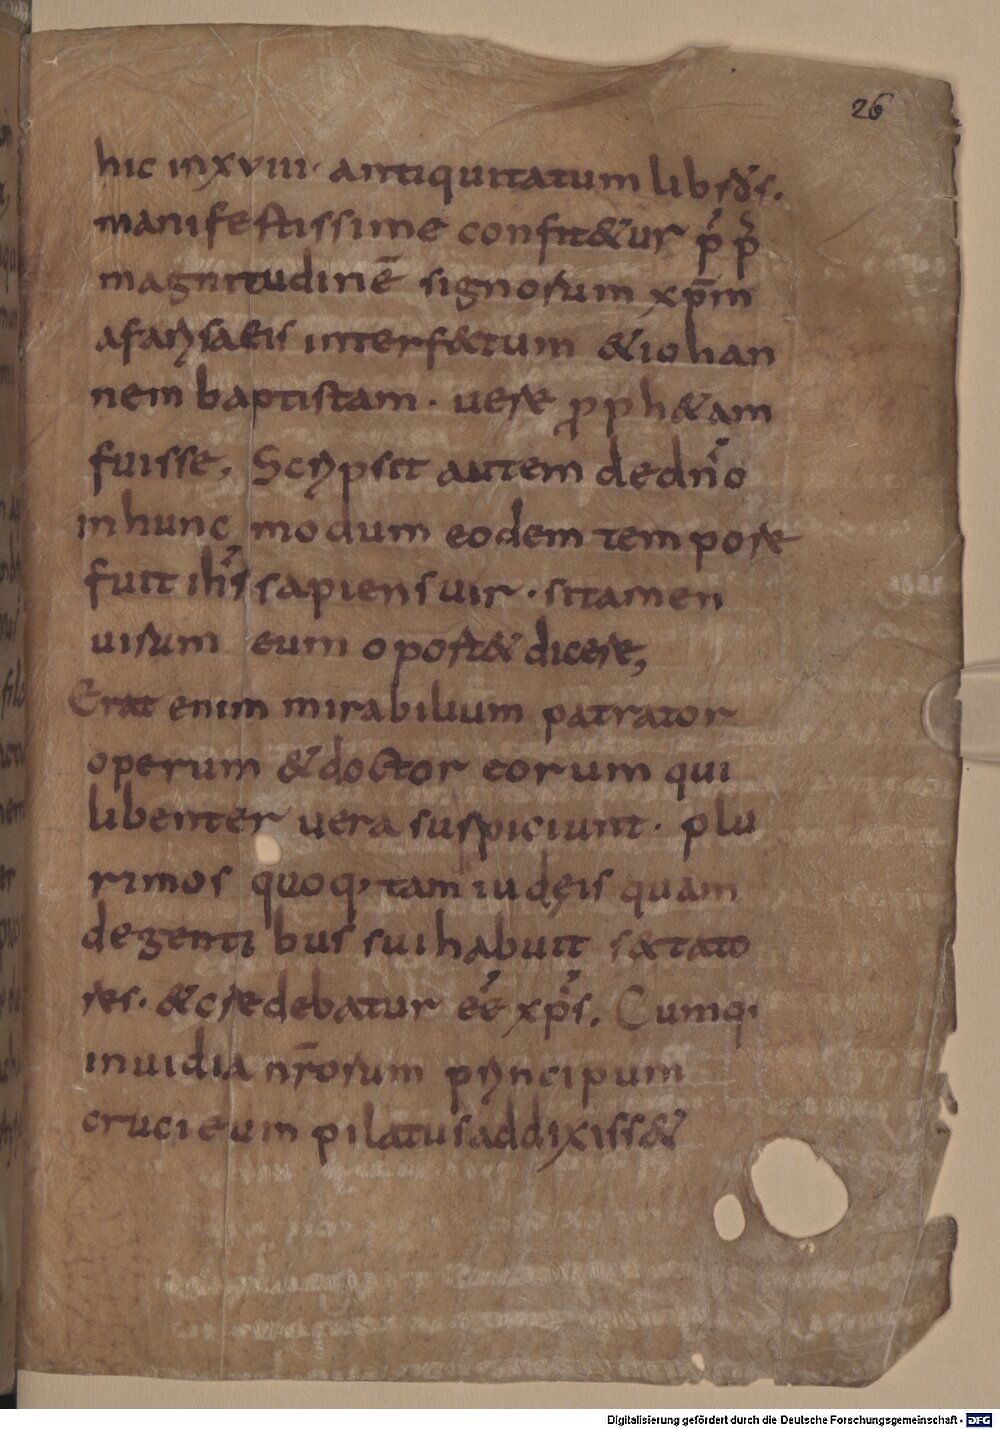 26
hic in xviii· antiquitatum libros.
manifestissime confit&ur p̄ p̄
magnitudinē signorum xp̄m
afarisaeis interf&tum &iohan
nem baptistam· uere proph&am
fuisse, Scripsit autem dedn̄o
inhunc modum eodem tempore
fuit ih̄s sapiens uir· sitamen
uirum eum oport& dicere,
Erat enim mirabilium patrator
operum &doctor eorum qui
libenter uera suspiciunt· plu
rimos quoq, tam iudęis quam
degenti bus sui habuit s&tato
res· &credebatur eē xp̄s. Cumq,
inuidia nr̄orum principum
cruci eum pilatus addixiss&
Digitalisierung gefördert durch die Deutsche Forschungsgemeinschaft - DFG